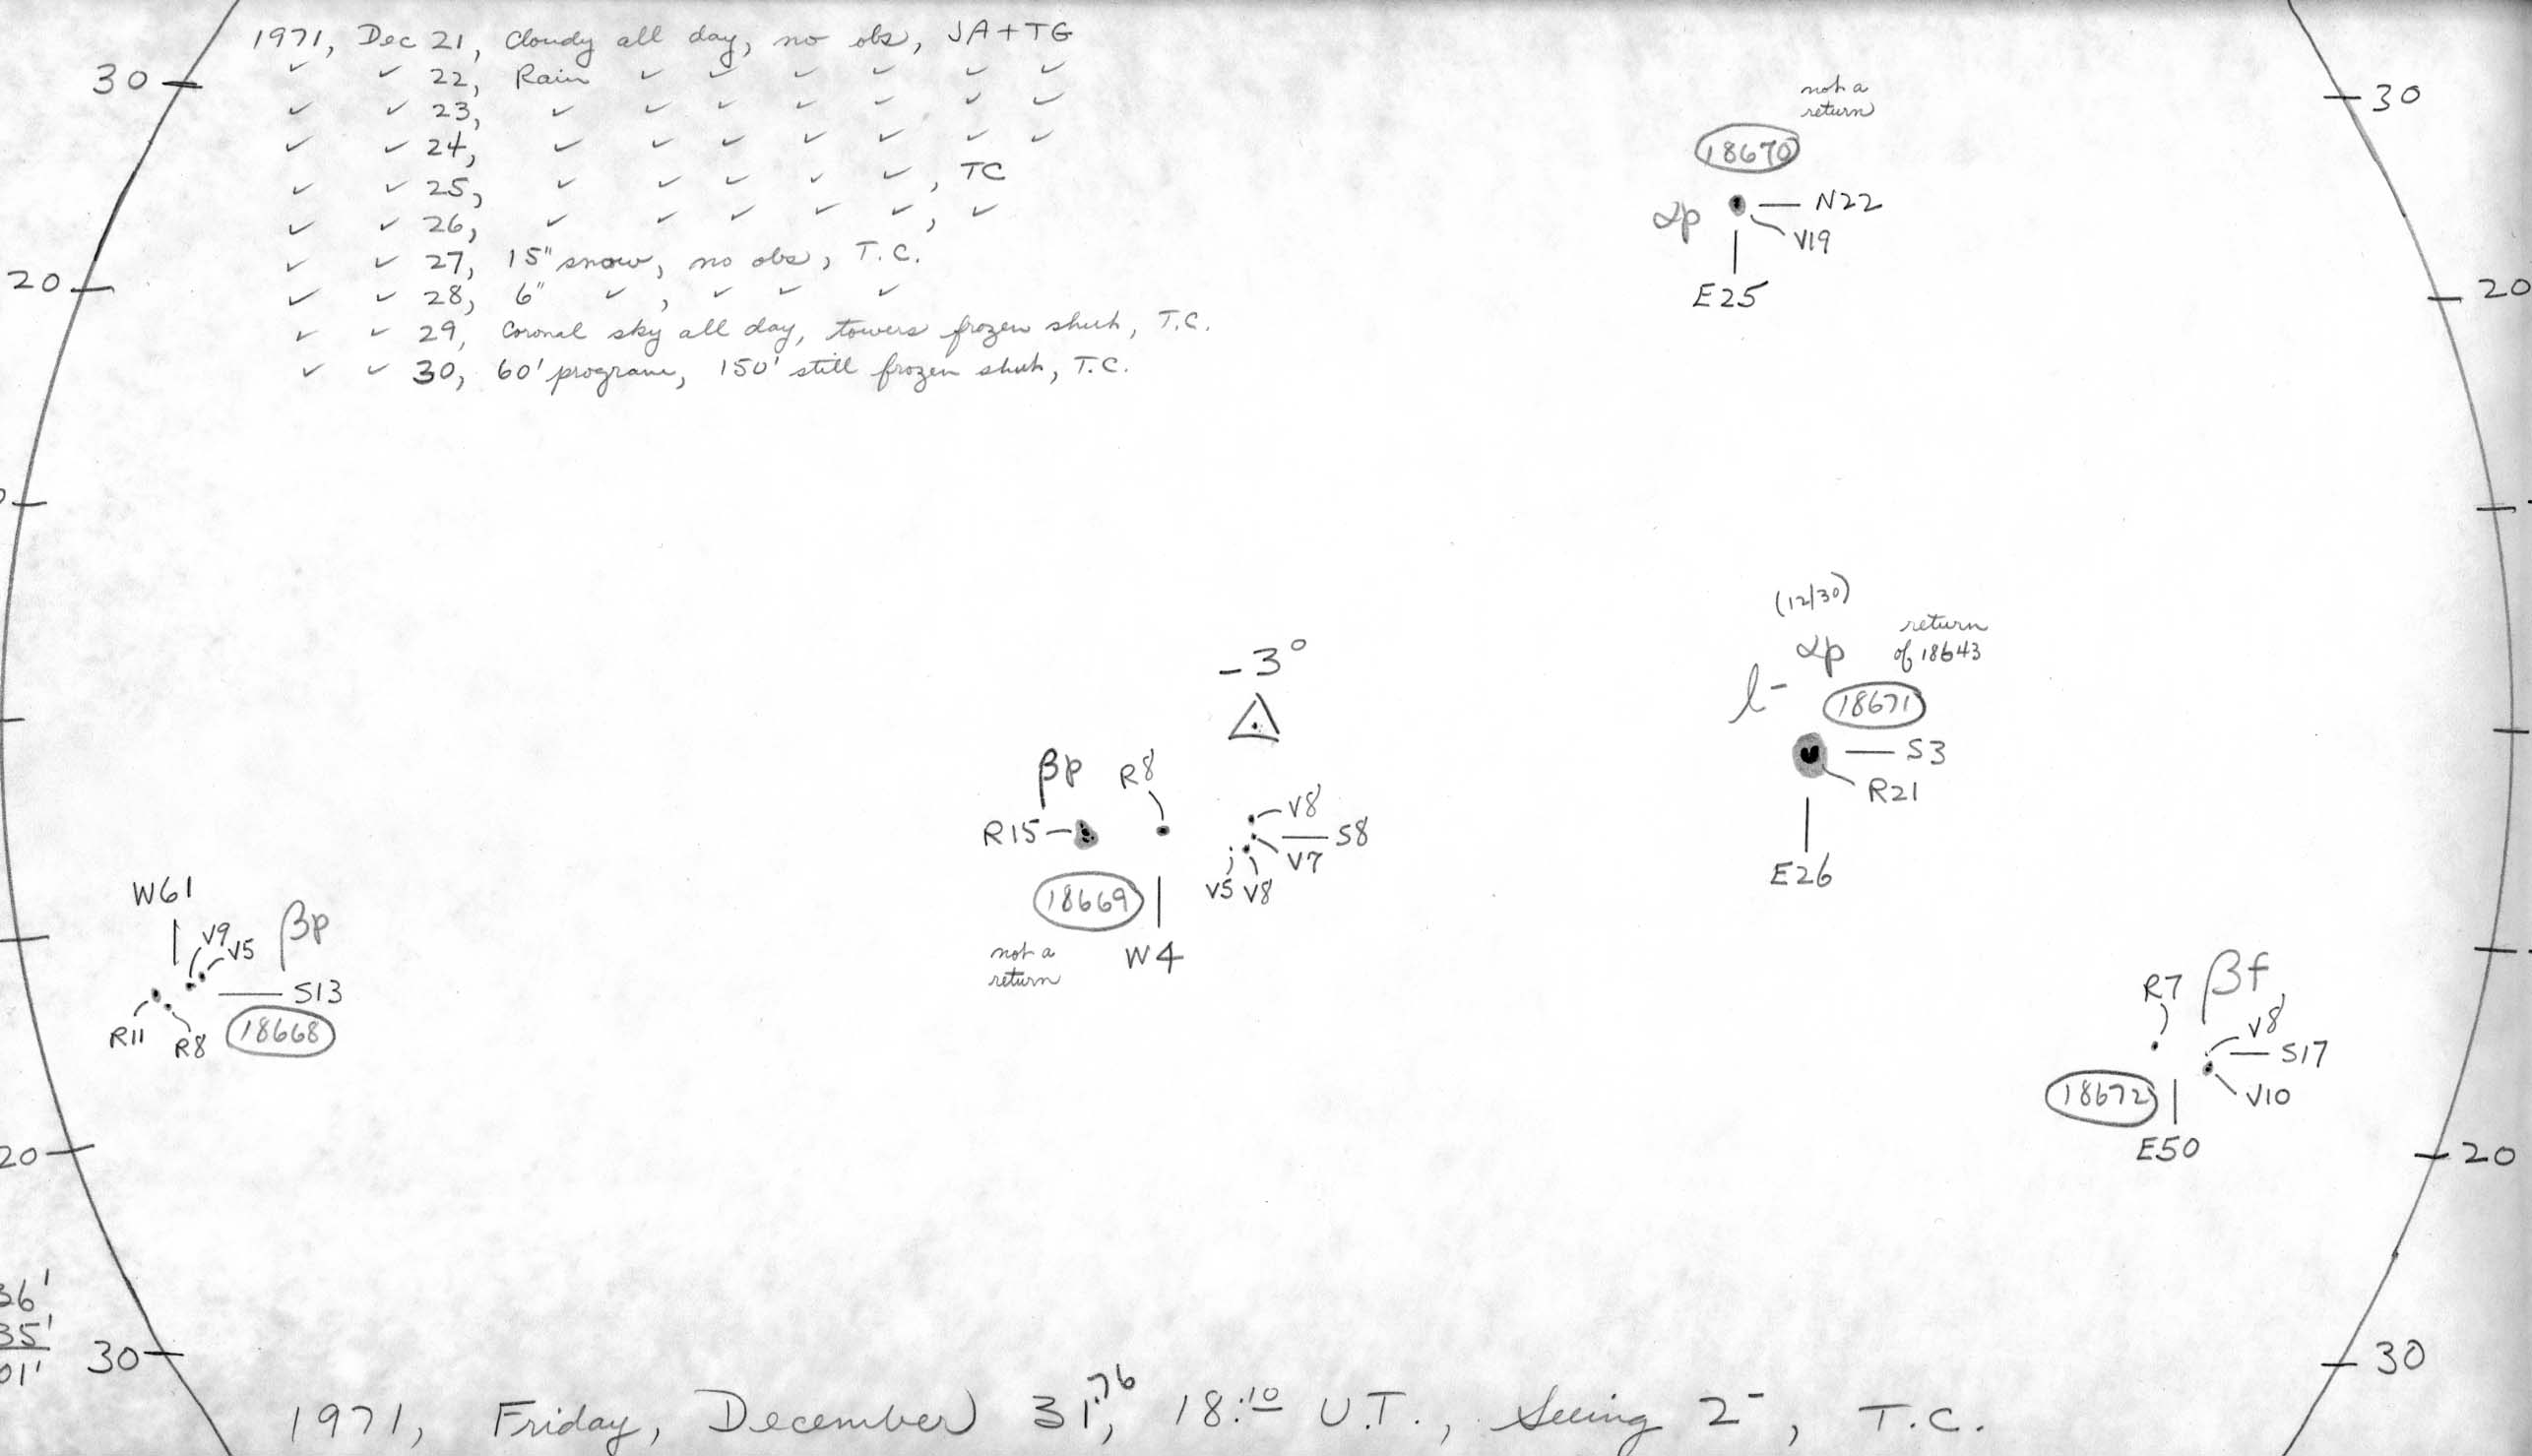 1971, Dec 21, Cloudy all day, no obs, JA+TG
✓ ✓ 22, Rain ✓ ✓ ✓ ✓ ✓ ✓
✓ ✓ 23, ✓ ✓ ✓ ✓ ✓ ✓ ✓
✓ ✓ 24, ✓ ✓ ✓ ✓ ✓ ✓ ✓
✓ ✓ 25, ✓ ✓ ✓ ✓ ✓, TC
✓ ✓ 26, ✓ ✓ ✓ ✓ ✓, ✓
✓ ✓ 27, 15" snow, no obs, T.C.
✓ ✓ 28, 6" ✓, ✓ ✓ ✓
✓ ✓ 29, Coronal sky all day, towers frozen shut, T.C.
✓ ✓ 30, 60' program, 150' still frozen shut, T.C.
30
30
20
20
not a
return
18670
αp
N22
V19
E25
(12/30)
αp
return
of 18643
l-
18671
S3
R21
E26
-3°
βp
R8
R15
V8
S8
V7
V5 V8
18669
not a
return
W4
W61
V9
V5
βp
S13
R11
R8
18668
R7
βf
V8
S17
V10
18672
E50
20
20
36'
35'
01'
30
30
1971, Friday, December 31.76, 18:10 U.T., Seeing 2-, T.C.